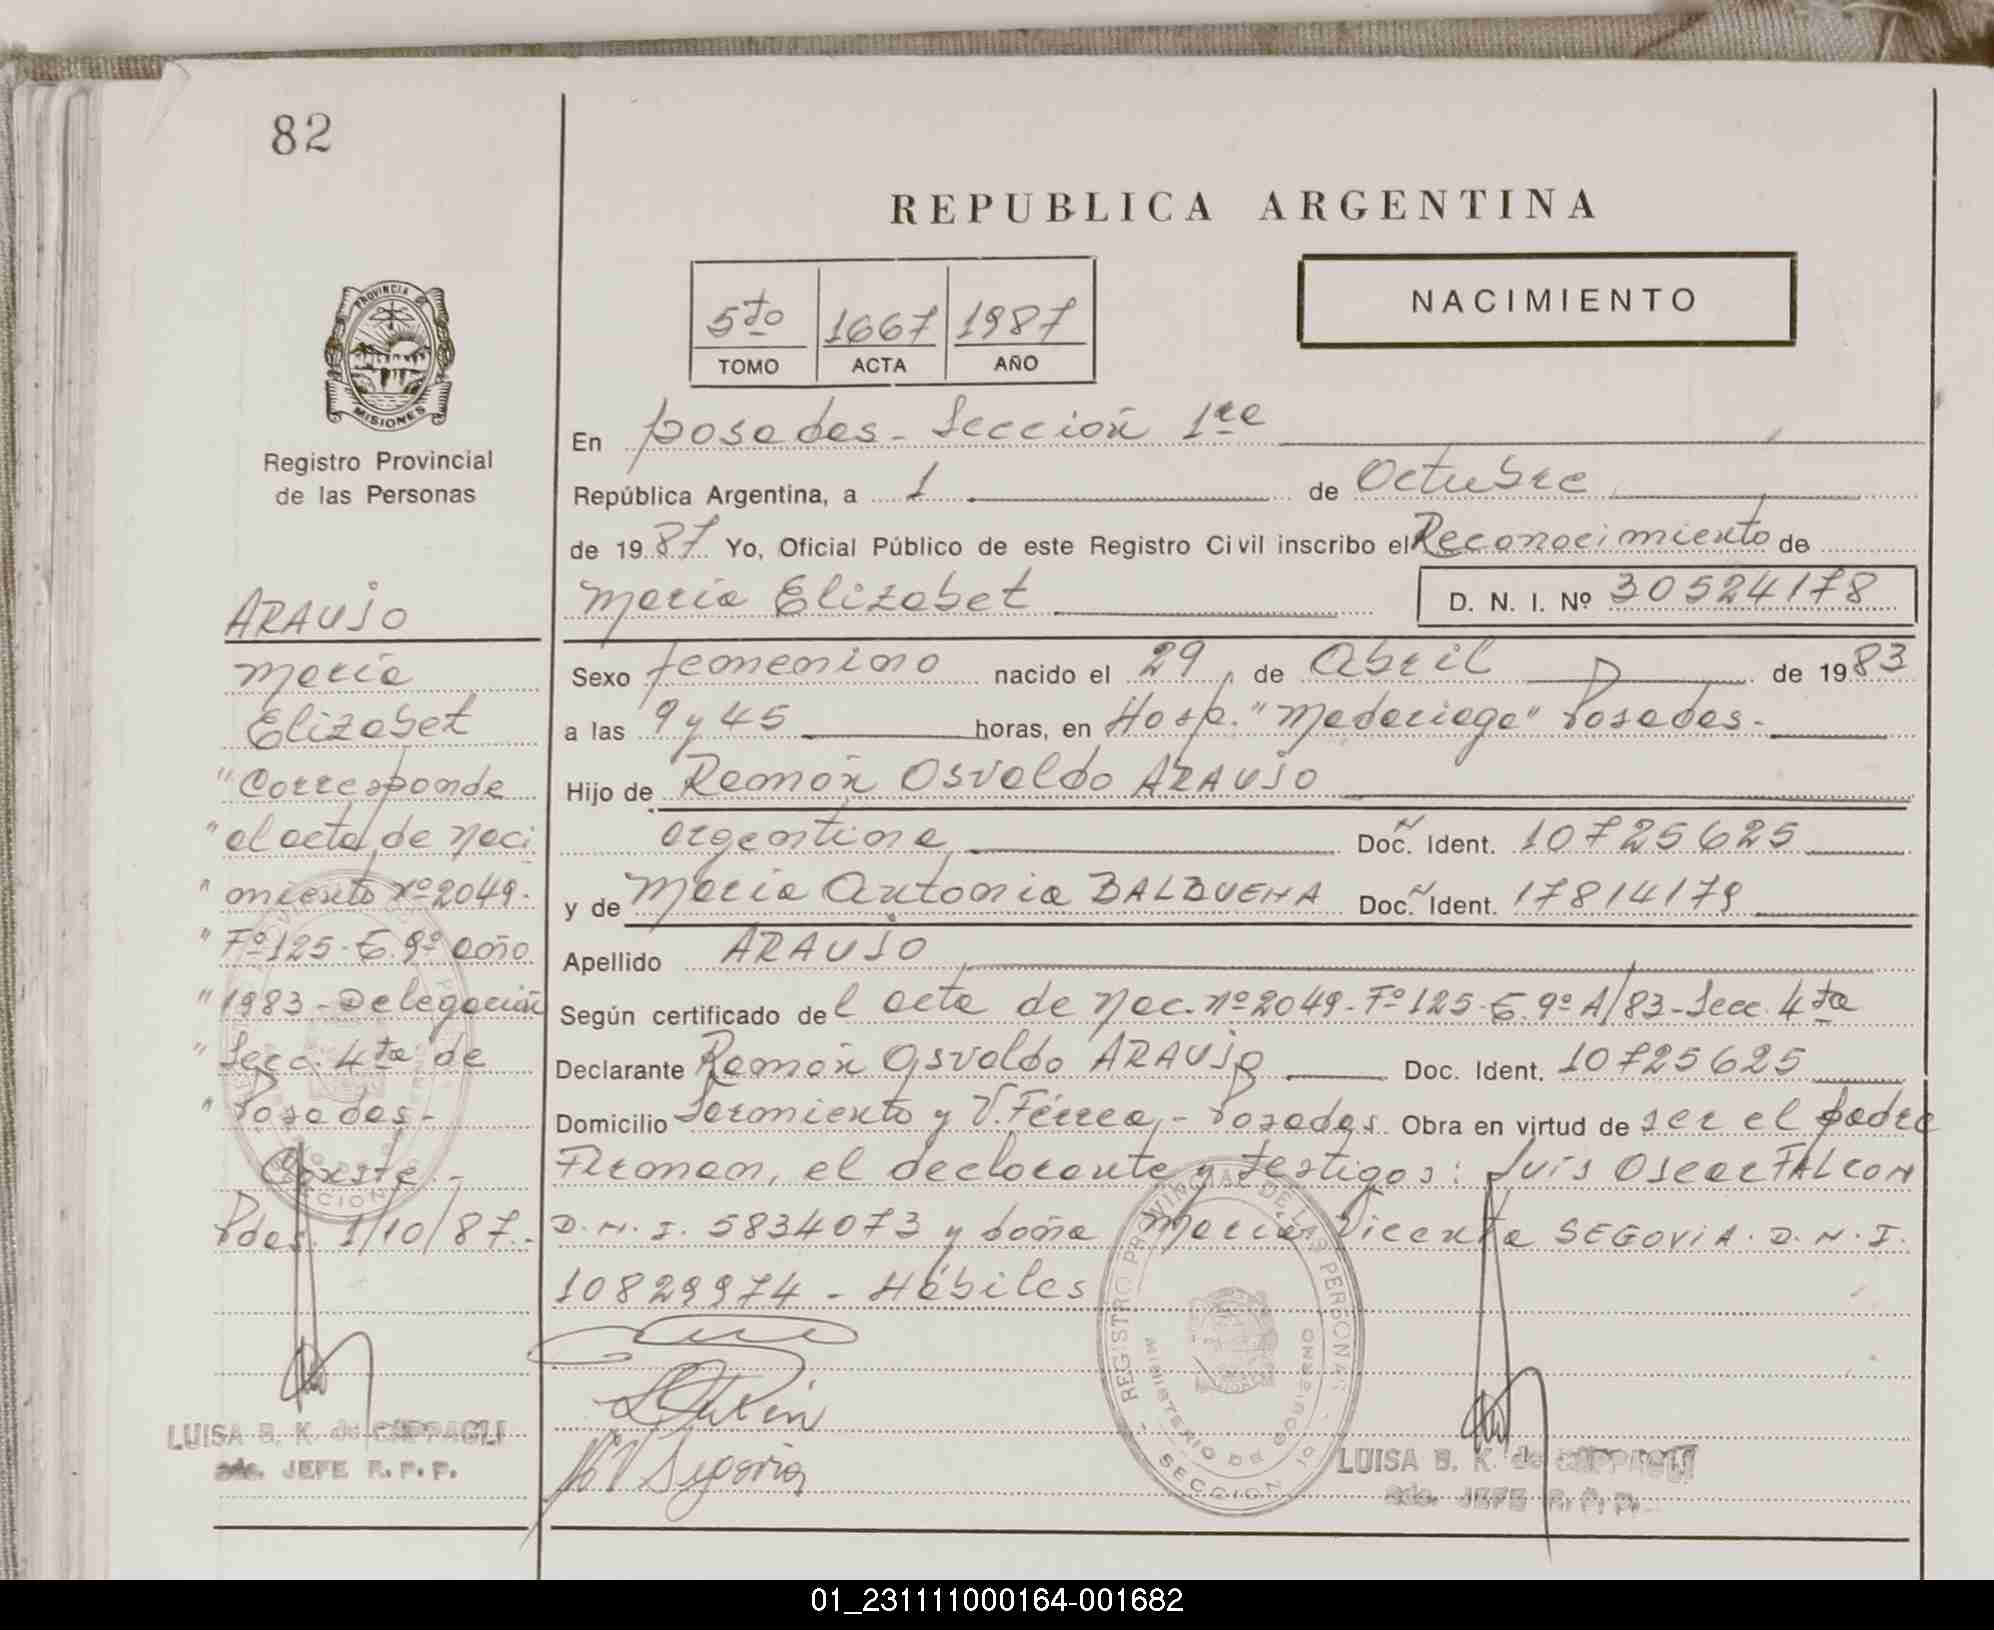 82
REPUBLICA ARGENTINA
5to 1667 1987
TOMO ACTA AÑO
NACIMIENTO
PROVINCIA
MISIONES
Registro Provincial
de las Personas
En Posadas - Sección 1ra
República Argentina, a 1 de Octubre
de 1987 Yo, Oficial Público de este Registro Civil inscribo el Reconocimiento de
María Elizabet D. N. I. Nº 30524178
Sexo femenino nacido el 29 de Abril de 1983
a las 9 y 45 horas, en Hosp. "Madariaga" Posadas.-
Hijo de Ramón Osvaldo ARAUJO
argentina Doc. Ident. 10725625
y de María Antonia BALBUENA Doc. Ident. 17814179
Apellido ARAUJO
Según certificado del acta de Nac. Nº 2049 - Fº 125 - T. 9º A/83 - Secc. 4ta
Declarante Ramón Osvaldo ARAUJO Doc. Ident. 10725625
Domicilio Sarmiento y V. Férrea, - Posadas. Obra en virtud de ser el padre
Firman, el declarante y testigos: Luis Oscar FALCON
D.N.I. 5834073 y doña María Vicenta SEGOVIA. D.N.I.
10829974 - Hábiles
MV Segovia
REGISTRO PROVINCIAL DE LAS PERSONAS
MINISTERIO DE GOBIERNO
SECCION
LUISA B. K. de CAPPAGLI
JEFE R. P. P.
ARAUJO
María
Elizabet
"Corresponde
"al acta de naci
"miento Nº 2049.
"Fº 125 - T. 9º año
"1983 - Delegación
"Secc. 4ta de
"Posadas -
Conste.-
Pdas. 1/10/87.-
LUISA B. K. de CAPPAGLI
JEFE R. P. P.
01_231111000164-001682